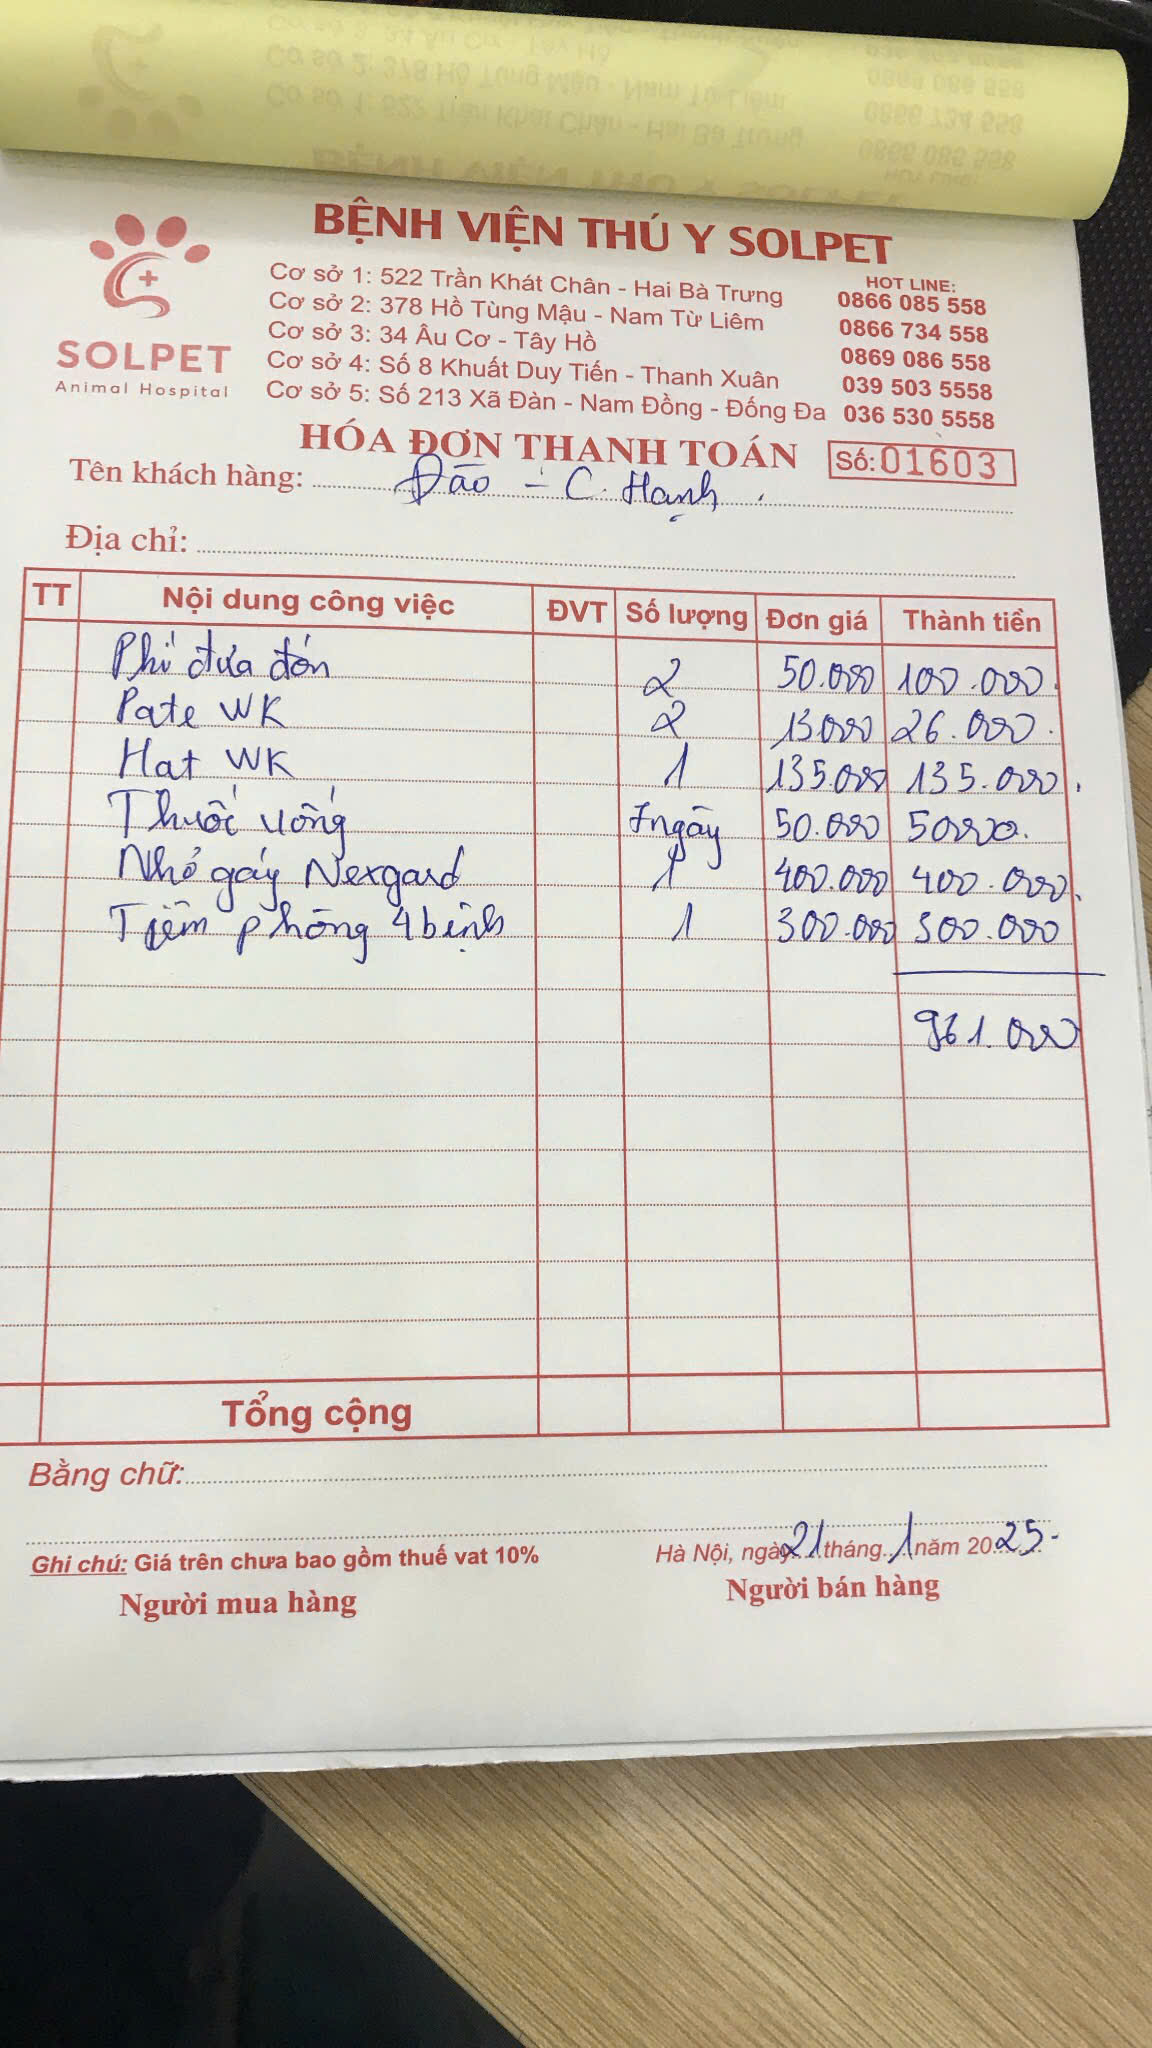 BỆNH VIỆN THÚ Y SOLPET
SOLPET
Animal Hospital
Cơ sở 1: 522 Trần Khát Chân - Hai Bà Trưng
Cơ sở 2: 378 Hồ Tùng Mậu - Nam Từ Liêm
Cơ sở 3: 34 Âu Cơ - Tây Hồ
Cơ sở 4: Số 8 Khuất Duy Tiến - Thanh Xuân
Cơ sở 5: Số 213 Xã Đàn - Nam Đồng - Đống Đa
HOT LINE:
0866 085 558
0866 734 558
0869 086 558
039 503 5558
036 530 5558
HÓA ĐƠN THANH TOÁN Số: 01603
Tên khách hàng: Đào - C. Hạnh.
Địa chỉ:
TT Nội dung công việc ĐVT Số lượng Đơn giá Thành tiền
Phí đưa đón 2 50.000 100.000.
Pate WK 2 13000 26.000.
Hat WK 1 135.000 135.000.
Thuốc uống 7ngày 50.000 50000.
Nhỏ gáy Nexgard 1 400.000 400.000.
Tiêm phòng 4 bệnh 1 300.000 300.000
961.000
Tổng cộng
Bằng chữ:
Ghi chú: Giá trên chưa bao gồm thuế vat 10%
Hà Nội, ngày 21 tháng 1 năm 2025-
Người mua hàng Người bán hàng